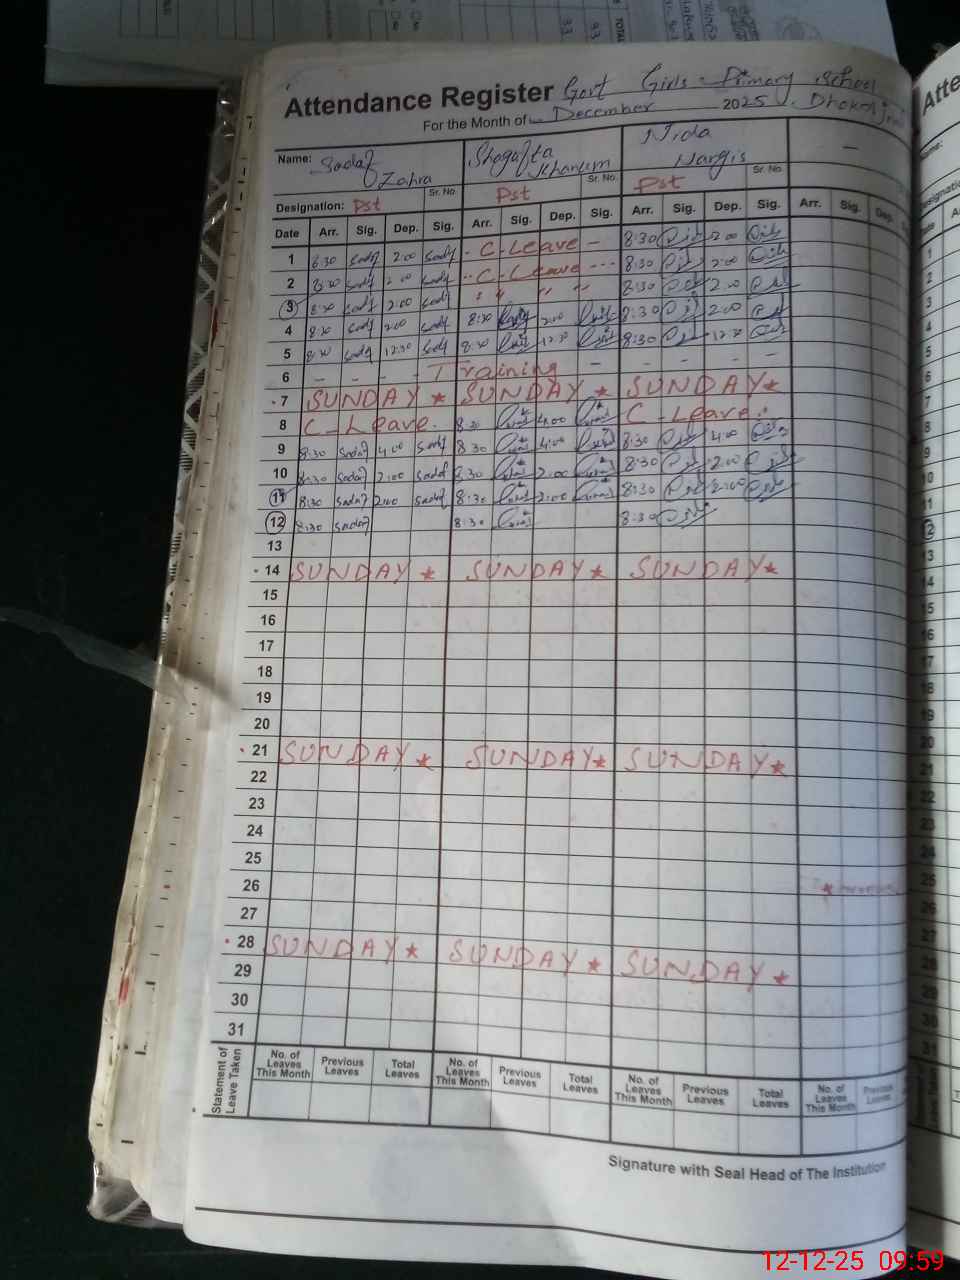 TOTAL
33 33
Attendance Register Govt Girls Primary School
For the Month of December 2025 Dhoke
Name: Sadaf Zahra Shagufta Khanum Nida Nargis –
Sr. No. Sr. No. Sr. No.
Designation: Pst Pst Pst
Date Arr. Sig. Dep. Sig. Arr. Sig. Dep. Sig. Arr. Sig. Dep. Sig. Arr. Sig. Dep.
1 8:30 Sadf 2:00 Sadf - C-Leave - 8:30 2:00
2 8:30 Sadf 2:00 Sadf -- C-Leave --- 8:30 2:00
3 8:30 Sadf 2:00 Sadf " " " " 8:30 2:00
4 8:30 Sadf 2:00 Sadf 8:30 2:00 8:30 2:00
5 8:30 Sadf 12:30 Sadf 8:30 12:30 8:30 12:30
6 - - - - Training - - - - -
7 SUNDAY ★ SUNDAY ★ SUNDAY ★
8 C-Leave. 8:30 4:00 C-Leave.
9 8:30 Sadaf 4:00 Sadf 8:30 4:00 8:30 4:00
10 8:30 Sadaf 2:00 Sadaf 8:30 2:00 8:30 2:00
11 8:30 Sadaf 2:00 Sadaf 8:30 2:00 8:30 2:00
12 8:30 Sadaf 8:30 8:30
13
14 SUNDAY ★ SUNDAY ★ SUNDAY ★
15
16
17
18
19
20
21 SUNDAY ★ SUNDAY ★ SUNDAY ★
22
23
24
25
26
27
28 SUNDAY ★ SUNDAY ★ SUNDAY ★
29
30
31
Statement of Leave Taken
No. of Leaves This Month Previous Leaves Total Leaves No. of Leaves This Month Previous Leaves Total Leaves No. of Leaves This Month Previous Leaves Total Leaves No. of Leaves This Month Previous Leaves
Signature with Seal Head of The Institution
12-12-25 09:59